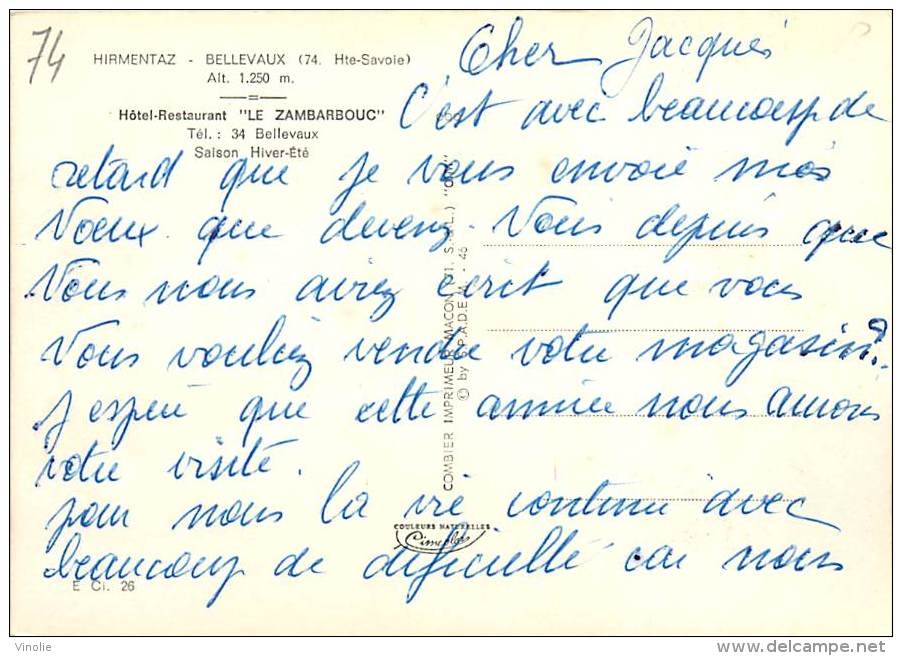 74
HIRMENTAZ - BELLEVAUX (74. Hte-Savoie)
Alt. 1.250 m.
Hôtel-Restaurant "LE ZAMBARBOUC"
Tél. : 34 Bellevaux
Saison Hiver-Été
Cher Jacques
C'est avec beaucoup de
retard que je vous envoie mes
Voeux que devenez-Vous depuis que
Vous nous aviez écrit que vous
Vous vouliez vendre votre magasin?
J'espère que cette année nous aurons
votre visite.
pour nous la vie continue avec
beaucoup de difficulté car nous
COMBIER IMPRIMEUR MACON
© by S.P.A.D.E.M. - 46
COULEURS NATURELLES
Cimcolor
E Ci. 26
Vinolie
https://www.delcampe.net